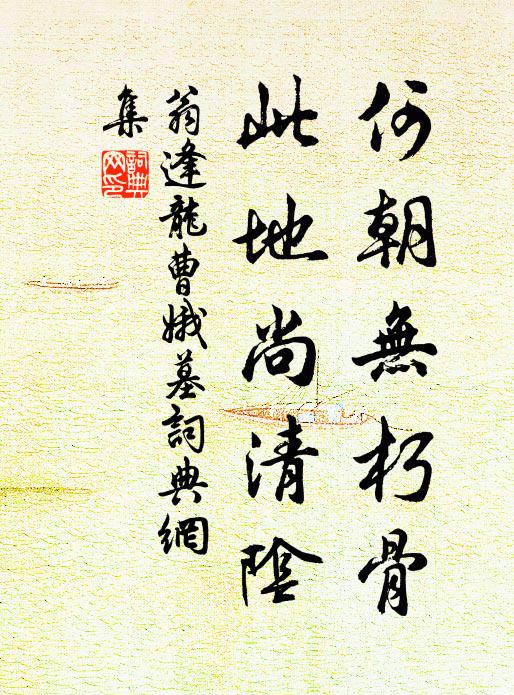 何朝無朽骨
此地尚清陰
翁逢龍曹娥墓詞典網
集
詞典
网印